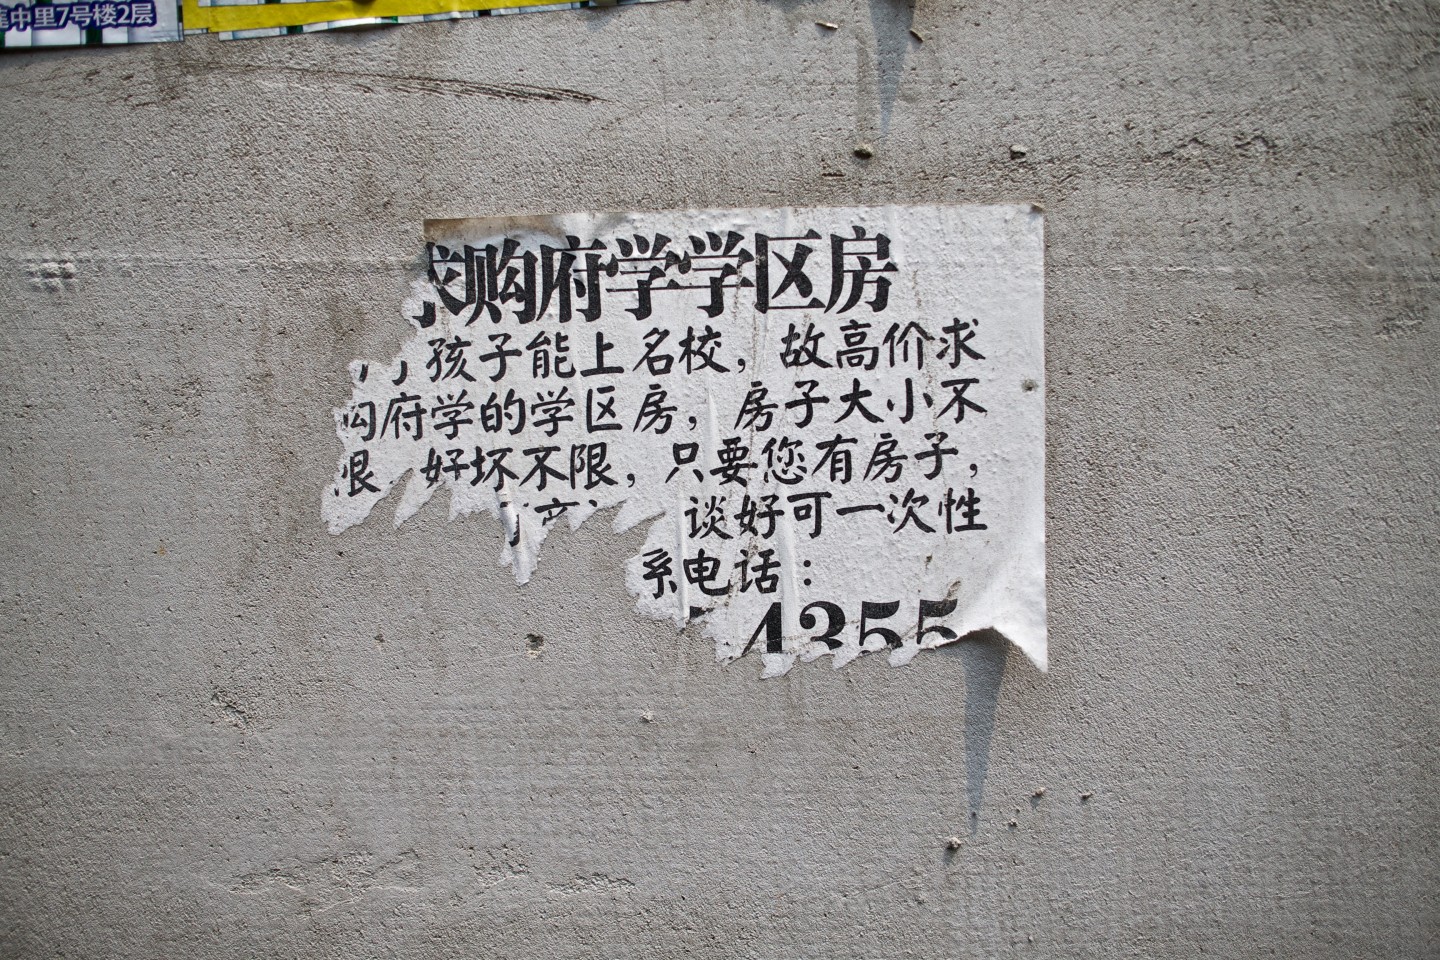 中里7号楼2层
求购府学学区房
孩子能上名校，故高价求
购府学的学区房，房子大小不
限，好坏不限，只要您有房子，
谈好可一次性
系电话：
4355